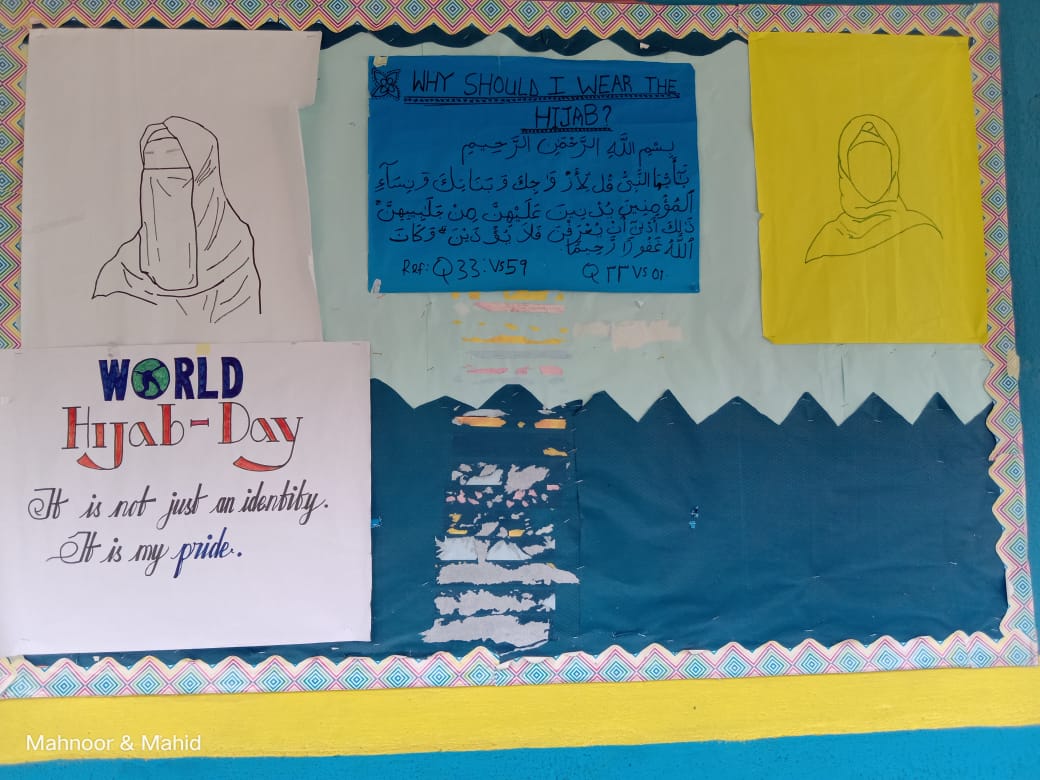 WHY SHOULD I WEAR THE
HIJAB?
بِسْمِ اللهِ الرَّحْمٰنِ الرَّحِيمِ
يَٰٓأَيُّهَا النَّبِىُّ قُل لِّأَزْوَٰجِكَ وَبَنَاتِكَ وَنِسَآءِ
الْمُؤْمِنِينَ يُدْنِينَ عَلَيْهِنَّ مِنْ جَلَٰبِيبِهِنَّ
ذَٰلِكَ أَدْنَىٰٓ أَنْ يُعْرَفْنَ فَلَا يُؤْذَيْنَ وَكَانَ
اللهُ غَفُورًا رَّحِيمًا
Ref: Q33:Vs59
WORLD
Hijab-Day
It is not just an identity.
It is my pride.
Mahnoor & Mahid